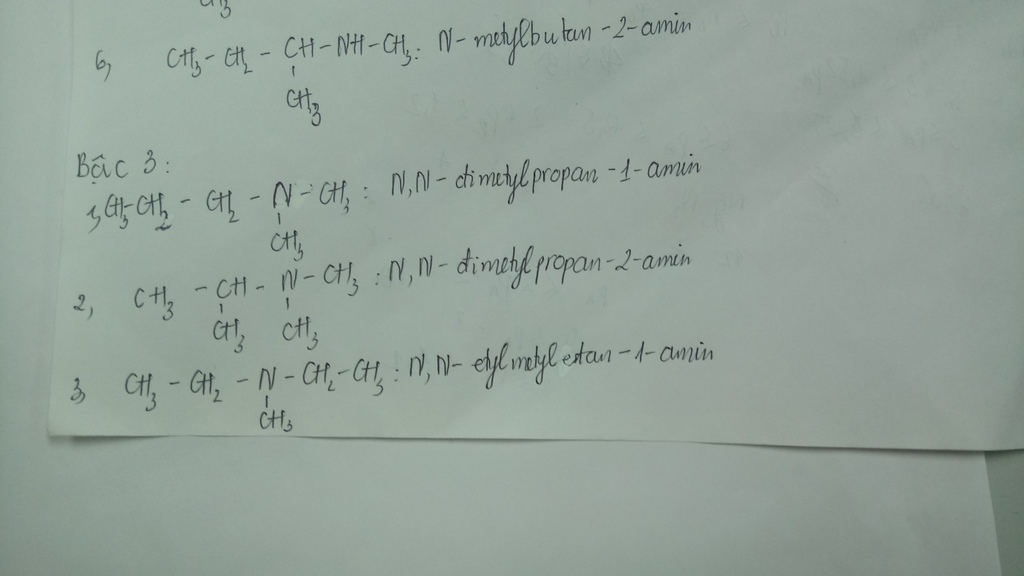 CH3
6, CH3 - CH2 - CH - NH - CH3: N - metylbutan - 2 - amin
CH3
Bậc 3:
1, CH3 CH2 - CH2 - N - CH3 : N,N - đimetylpropan - 1 - amin
CH3
2, CH3 - CH - N - CH3 : N,N - đimetylpropan - 2 - amin
CH3 CH3
3, CH3 - CH2 - N - CH2 - CH3 : N,N - etylmetyletan - 1 - amin
CH3